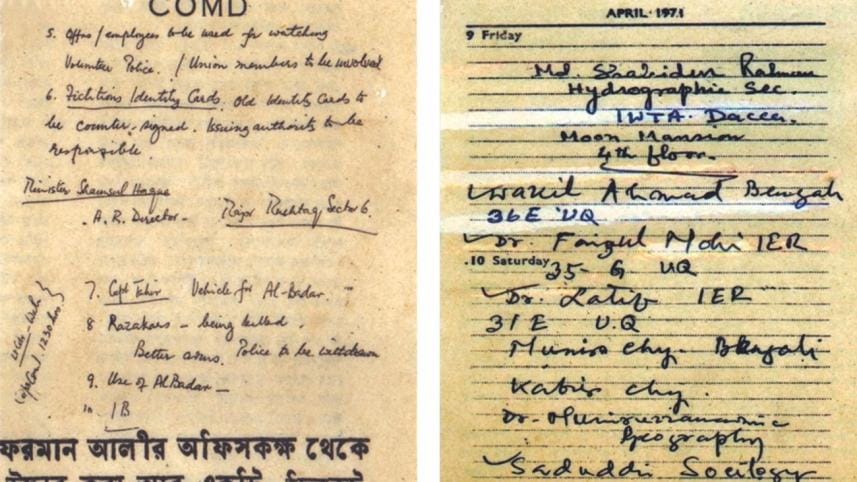 COMD
5. Offrs/employees to be used for watching
Volunteer Police. / Union members to be involved
6. Fictitious Identity Cards. Old Identity Cards to
be counter-signed. Issuing authority to be
responsible
Minister Shamsul Haque
A.R. Director - Major Mushtaq Sector 6.
7. Capt Tahir Vehicle for Al-Badar.
8 Razakars - being killed.
Better arms. Police to be withdrawn
9. Use of Al Badar -
10 IB
ফরমান আলীর অফিসকক্ষ থেকে
APRIL 1971
9 Friday
Md. Shahidur Rahman
Hydrographic Sec.
IWTA. Dacca.
Moon Mansion
4th floor.
Wakil Ahmad Bengali
36E UQ
Dr. Faizul Mohi IER
10 Saturday 35- G UQ
Dr. Latif IER
31E U.Q
Munir Chy. Bengali
Kabir Chy.
Dr.
Geography
Saduddin Sociology